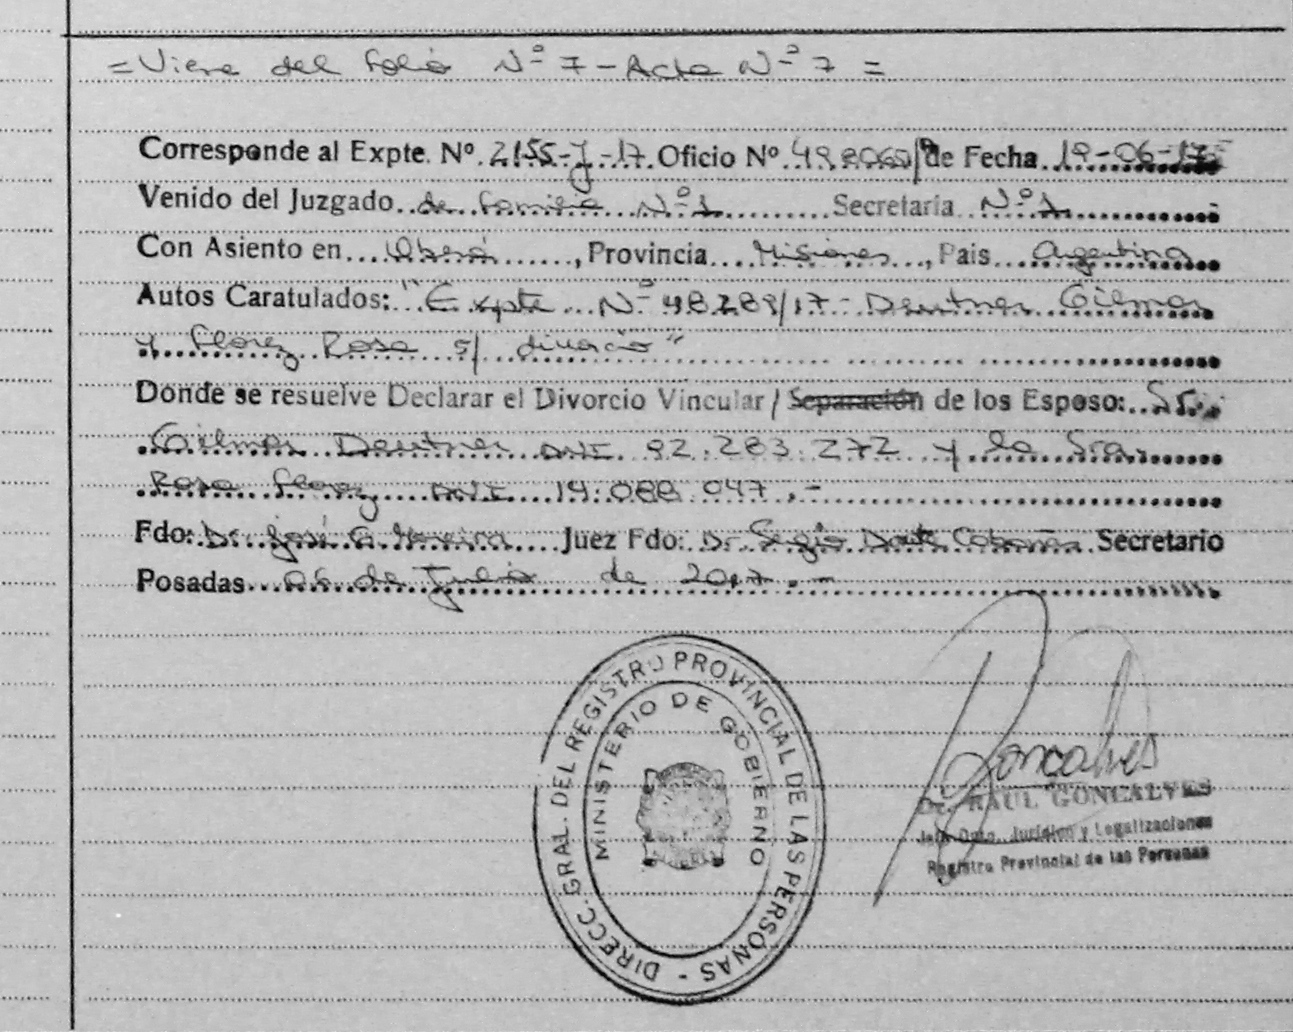 = Viene del folio Nº 7 - Acta Nº 7 =
Corresponde al Expte. Nº. 2155-J-17. Oficio Nº de Fecha 19-06-17
Venido del Juzgado de Familia Nº 1 Secretaria Nº 1
Con Asiento en Oberá, Provincia Misiones, Pais Argentina
Autos Caratulados: "Expte Nº 48289/17 - Deutner Gilmar
y Florez Rosa s/ divorcio"
Donde se resuelve Declarar el Divorcio Vincular / Separación de los Esposo: Sr.
Gilmar Deutner DNI 92.283.272 y la Sra
Rosa Florez DNI 14.088.047.-
Fdo: Dr. José G. Moreira Juez Fdo: Dr Sergio Secretario
Posadas 06 de Julio de 2017.-
DIRECC. GRAL. DEL REGISTRO PROVINCIAL DE LAS PERSONAS -
MINISTERIO DE GOBIERNO
Goncalves
Dr. RAUL GONCALVES
Jefe Dpto. Jurídico y Legalizaciones
Registro Provincial de las Personas